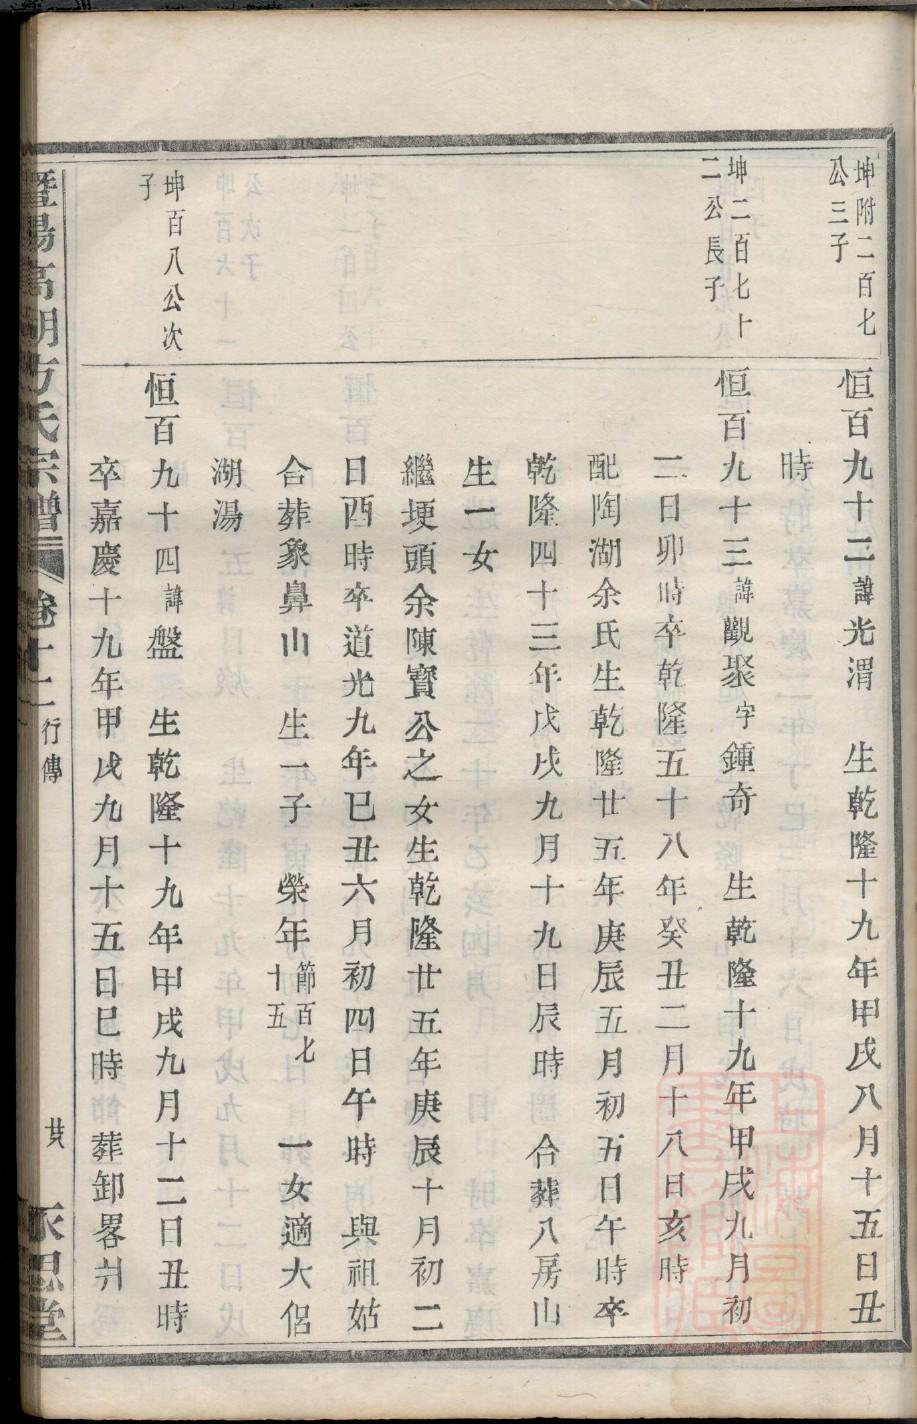 坤附二百七
公三子
恒百九十二諱光渭　生乾隆十九年甲戌八月十五日丑
時
坤二百七十
二公長子
恒百九十三諱觀聚字鍾奇　生乾隆十九年甲戌九月初
二日卯時卒乾隆五十八年癸丑二月十八日亥時
配陶湖余氏生乾隆廿五年庚辰五月初五日午時卒
乾隆四十三年戊戌九月十九日辰時　合葬八房山
生一女
繼埂頭余陳寳公之女生乾隆廿五年庚辰十月初二
日酉時卒道光九年巳丑六月初四日午時　與祖姑
合葬象鼻山　生一子　榮年節百七十五　一女適大侶
湖湯
坤百八公次
子
恒百九十四諱盤　生乾隆十九年甲戌九月十二日丑時
卒嘉慶十九年甲戌九月十五日巳時　葬卸畧
暨陽高湖方氏宗譜　卷十二　行傳　廿八　永思堂